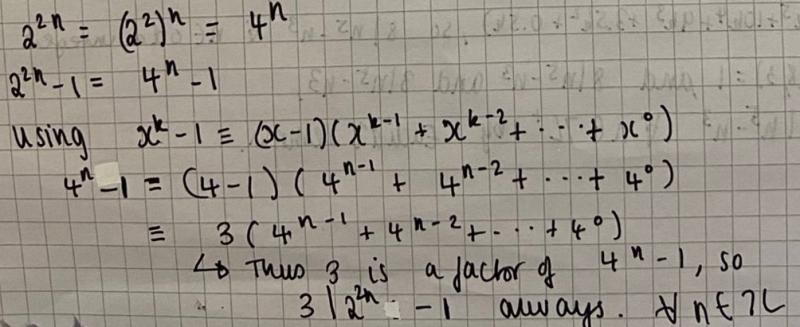 2²ⁿ = (2²)ⁿ = 4ⁿ
2²ⁿ - 1 = 4ⁿ - 1
Using xᵏ - 1 ≡ (x-1)(xᵏ⁻¹ + xᵏ⁻² + ··· + x⁰)
4ⁿ - 1 = (4-1)(4ⁿ⁻¹ + 4ⁿ⁻² + ··· + 4⁰)
≡ 3(4ⁿ⁻¹ + 4ⁿ⁻² + ··· + 4⁰)
↳ Thus 3 is a factor of 4ⁿ - 1, so
3 | 2²ⁿ - 1 always. ∀ n ∈ ℤ